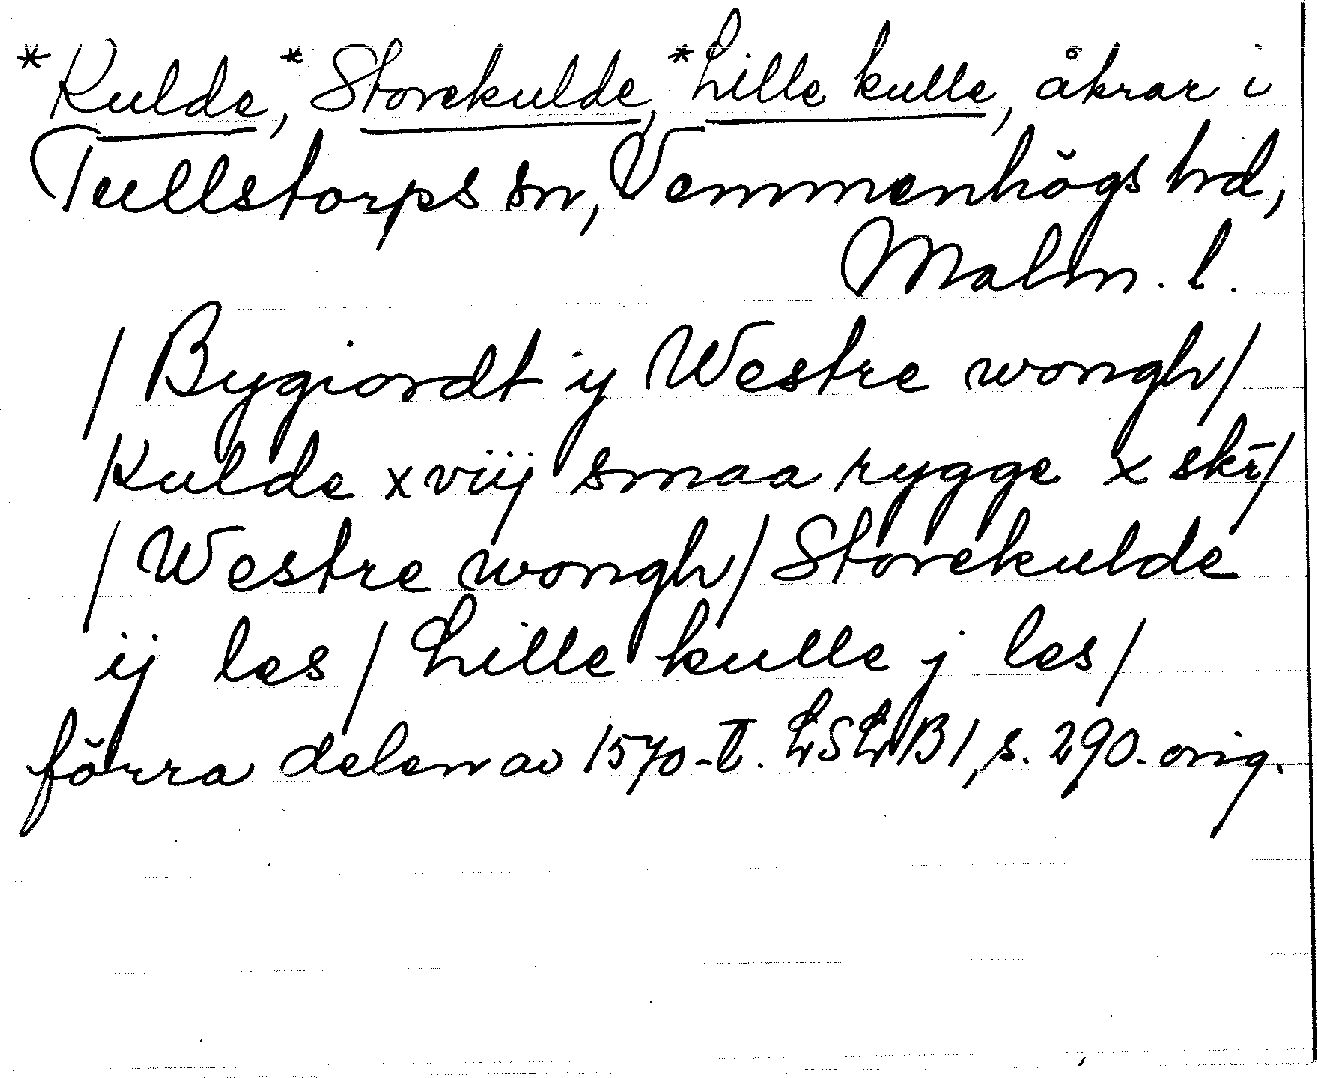 *Kulde, *Storekulde, *Lille kulle, åkrar i
Tullstorps sn, Vemmenhögs hd,
Malm. l.
/ Bygiordt ij Westre wongh/
Kulde xviij smaa rygge x skr̄/
/ Westre wongh/ Storekulde
ij les / Lille kulle j les /
förra delen av 1570-t. LSLB1, s. 290. orig.